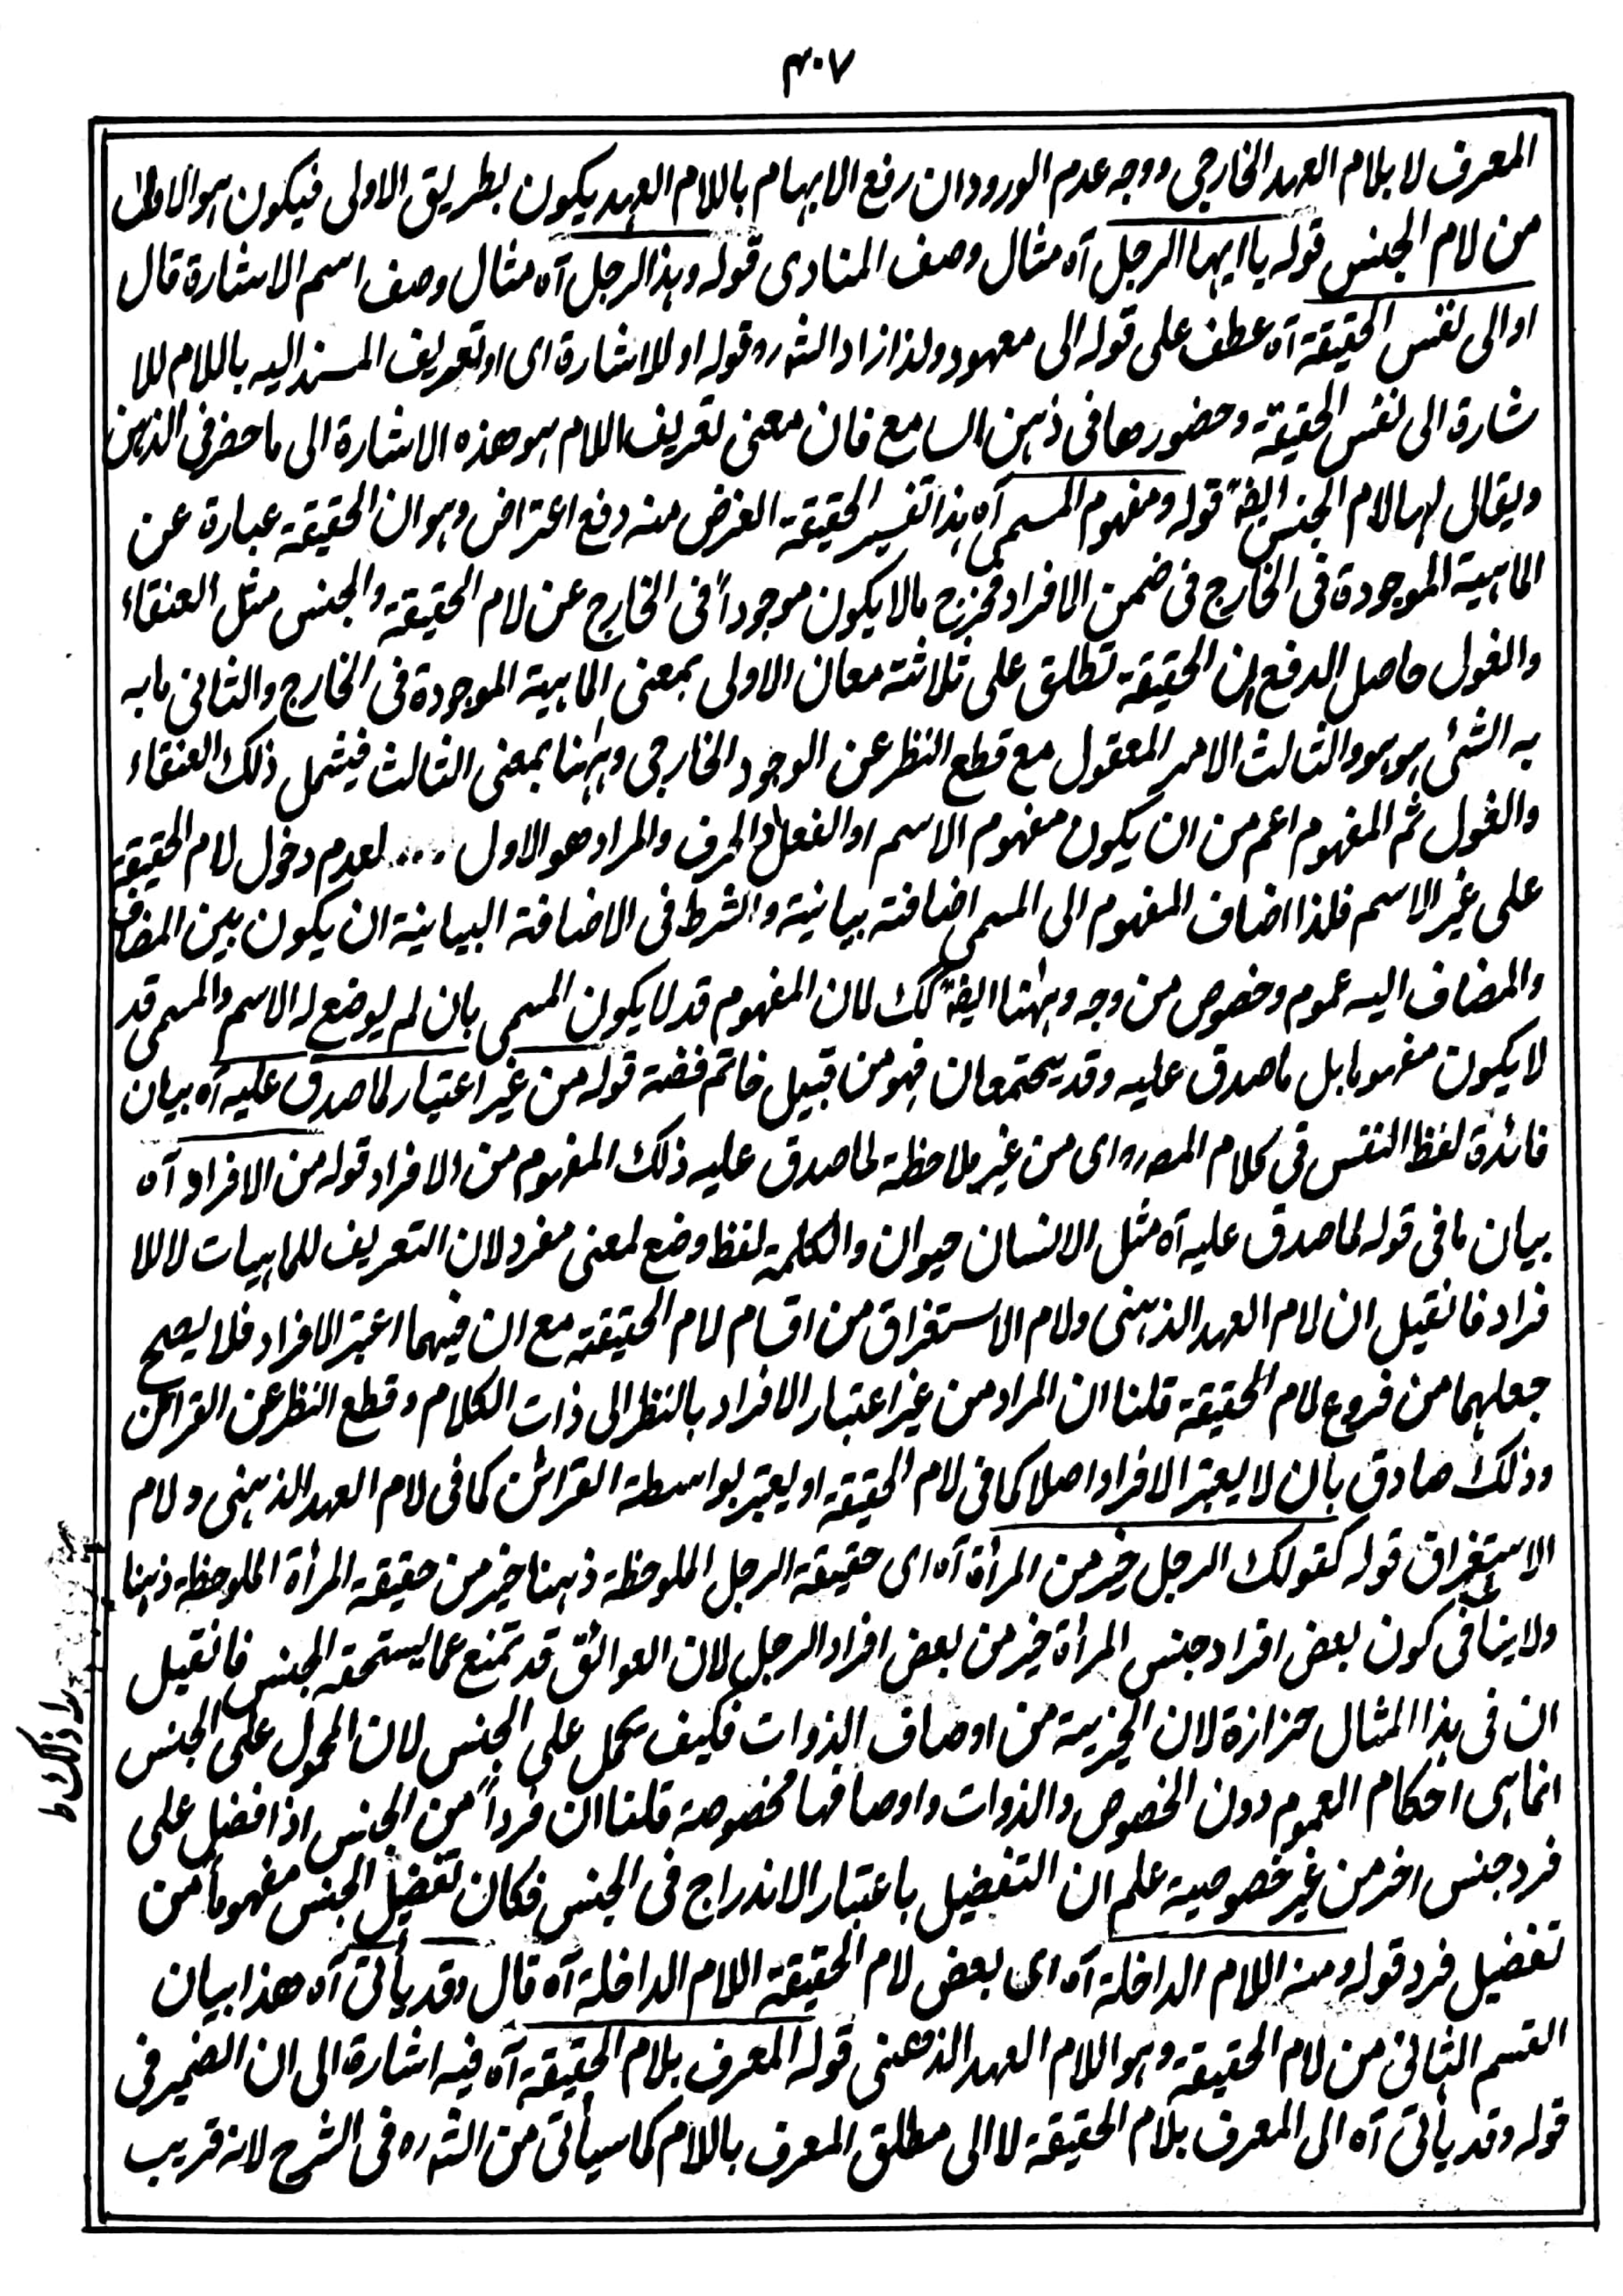 ٣٠٧
المعرف لا بلام العهد الخارجى ووجه عدم الورودان رفع الابهام باللام العهد يكون بطريق الاولى فيكون هو الاولى
من لام الجنس قوله يا ايها الرجل آه مثال وصف المنادى قوله وهذا الرجل آه مثال وصف اسم الاشارة قال
او الى نفس الحقيقة آه عطف على قوله الى معهود ولذا زاد الشره قوله او للاشارة اى او تعريف المسند اليه باللام للا
شارة الى نفس الحقيقة وحضورها فى ذهن السامع فان معنى تعريف اللام هو هذه الاشارة الى ما حضر فى الذهن
ويقال لها لام الجنس ايضا قوله ومفهوم المسمى آه هذا تفسير الحقيقة الغرض منه دفع اعتراض وهو ان الحقيقة عبارة عن
الماهية الموجودة فى الخارج فى ضمن الافراد فخرج ما لا يكون موجوداً فى الخارج عن لام الحقيقة والجنس مثل العنقاء
والغول حاصل الدفع ان الحقيقة تطلق على ثلاثة معان الاولى بمعنى الماهية الموجودة فى الخارج والثانى ما به
به الشئ هو هو والثالث الامر المعقول مع قطع النظر عن الوجود الخارجى وههنا بمعنى الثالث فيشمل ذلك العنقاء
والغول ثم المفهوم اعم من ان يكون مفهوم الاسم او الفعل او الحرف والمراد هو الاول .... لعدم دخول لام الحقيقة
على غير الاسم فلذا اضاف المفهوم الى المسمى اضافة بيانية والشرط فى الاضافة البيانية ان يكون بين المضاف
والمضاف اليه عموم وخصوص من وجه وههنا ايضا كك لان المفهوم قد لا يكون المسمى بان لم يوضع له الاسم والمسمى قد
لا يكون مفهوما بل ما صدق عليه وقد يجتمعان فهو من قبيل خاتم فضة قوله من غير اعتبار لما صدق عليه آه بيان
فائدة لفظ النفس فى كلام المصره اى من غير ملاحظة لما صدق عليه ذلك المفهوم من الافراد قوله من الافراد آه
بيان ما فى قوله لما صدق عليه آه مثل الانسان حيوان والكلمة لفظ وضع لمعنى مفرد لان التعريف للماهيات لا للا
فراد فانقيل ان لام العهد الذهنى ولام الاستغراق من اقسام لام الحقيقة مع ان فيهما اعتبر الافراد فلا يصح
جعلهما من فروع لام الحقيقة قلنا ان المراد من غير اعتبار الافراد بالنظر الى ذات الكلام وقطع النظر عن القرائن
وذلك صادق بان لا يعتبر الافراد اصلا كما فى لام الحقيقة او يعتبر بواسطة القرائن كما فى لام العهد الذهنى ولام
الاستغراق قوله كقولك الرجل خير من المرأة آه اى حقيقة الرجل الملوحظة ذهنا خير من حقيقة المرأة الملوحظة ذهنا
ولا ينافى كون بعض افراد جنس المرأة خير من بعض افراد الرجل لان العوائق قد تمنع عما يستحقه الجنس فانقيل
ان فى هذا المثال حزازة لان الخيرية من اوصاف الذوات فكيف يحمل على الجنس لان المحمول على الجنس
انما هى احكام العموم دون الخصوص والذوات واوصافها مخصوصة قلنا ان فرداً من الجنس اذا فضل على
فرد جنس اخر من غير خصوصية علم ان التفضيل باعتبار الاندراج فى الجنس فكان تفضيل الجنس مفهوماً من
تفضيل فرد قوله ومنه اللام الداخلة آه اى بعض لام الحقيقة اللام الداخلة آه قال وقد يأتى آه هذا بيان
القسم الثانى من لام الحقيقة وهو اللام العهد الذهنى قوله المعرف بلام الحقيقة آه فيه اشارة الى ان الضمير فى
قوله وقد يأتى آه الى المعرف بلام الحقيقة لا الى مطلق المعرف باللام كما سيأتى من الشره فى الشرح لانه قريب